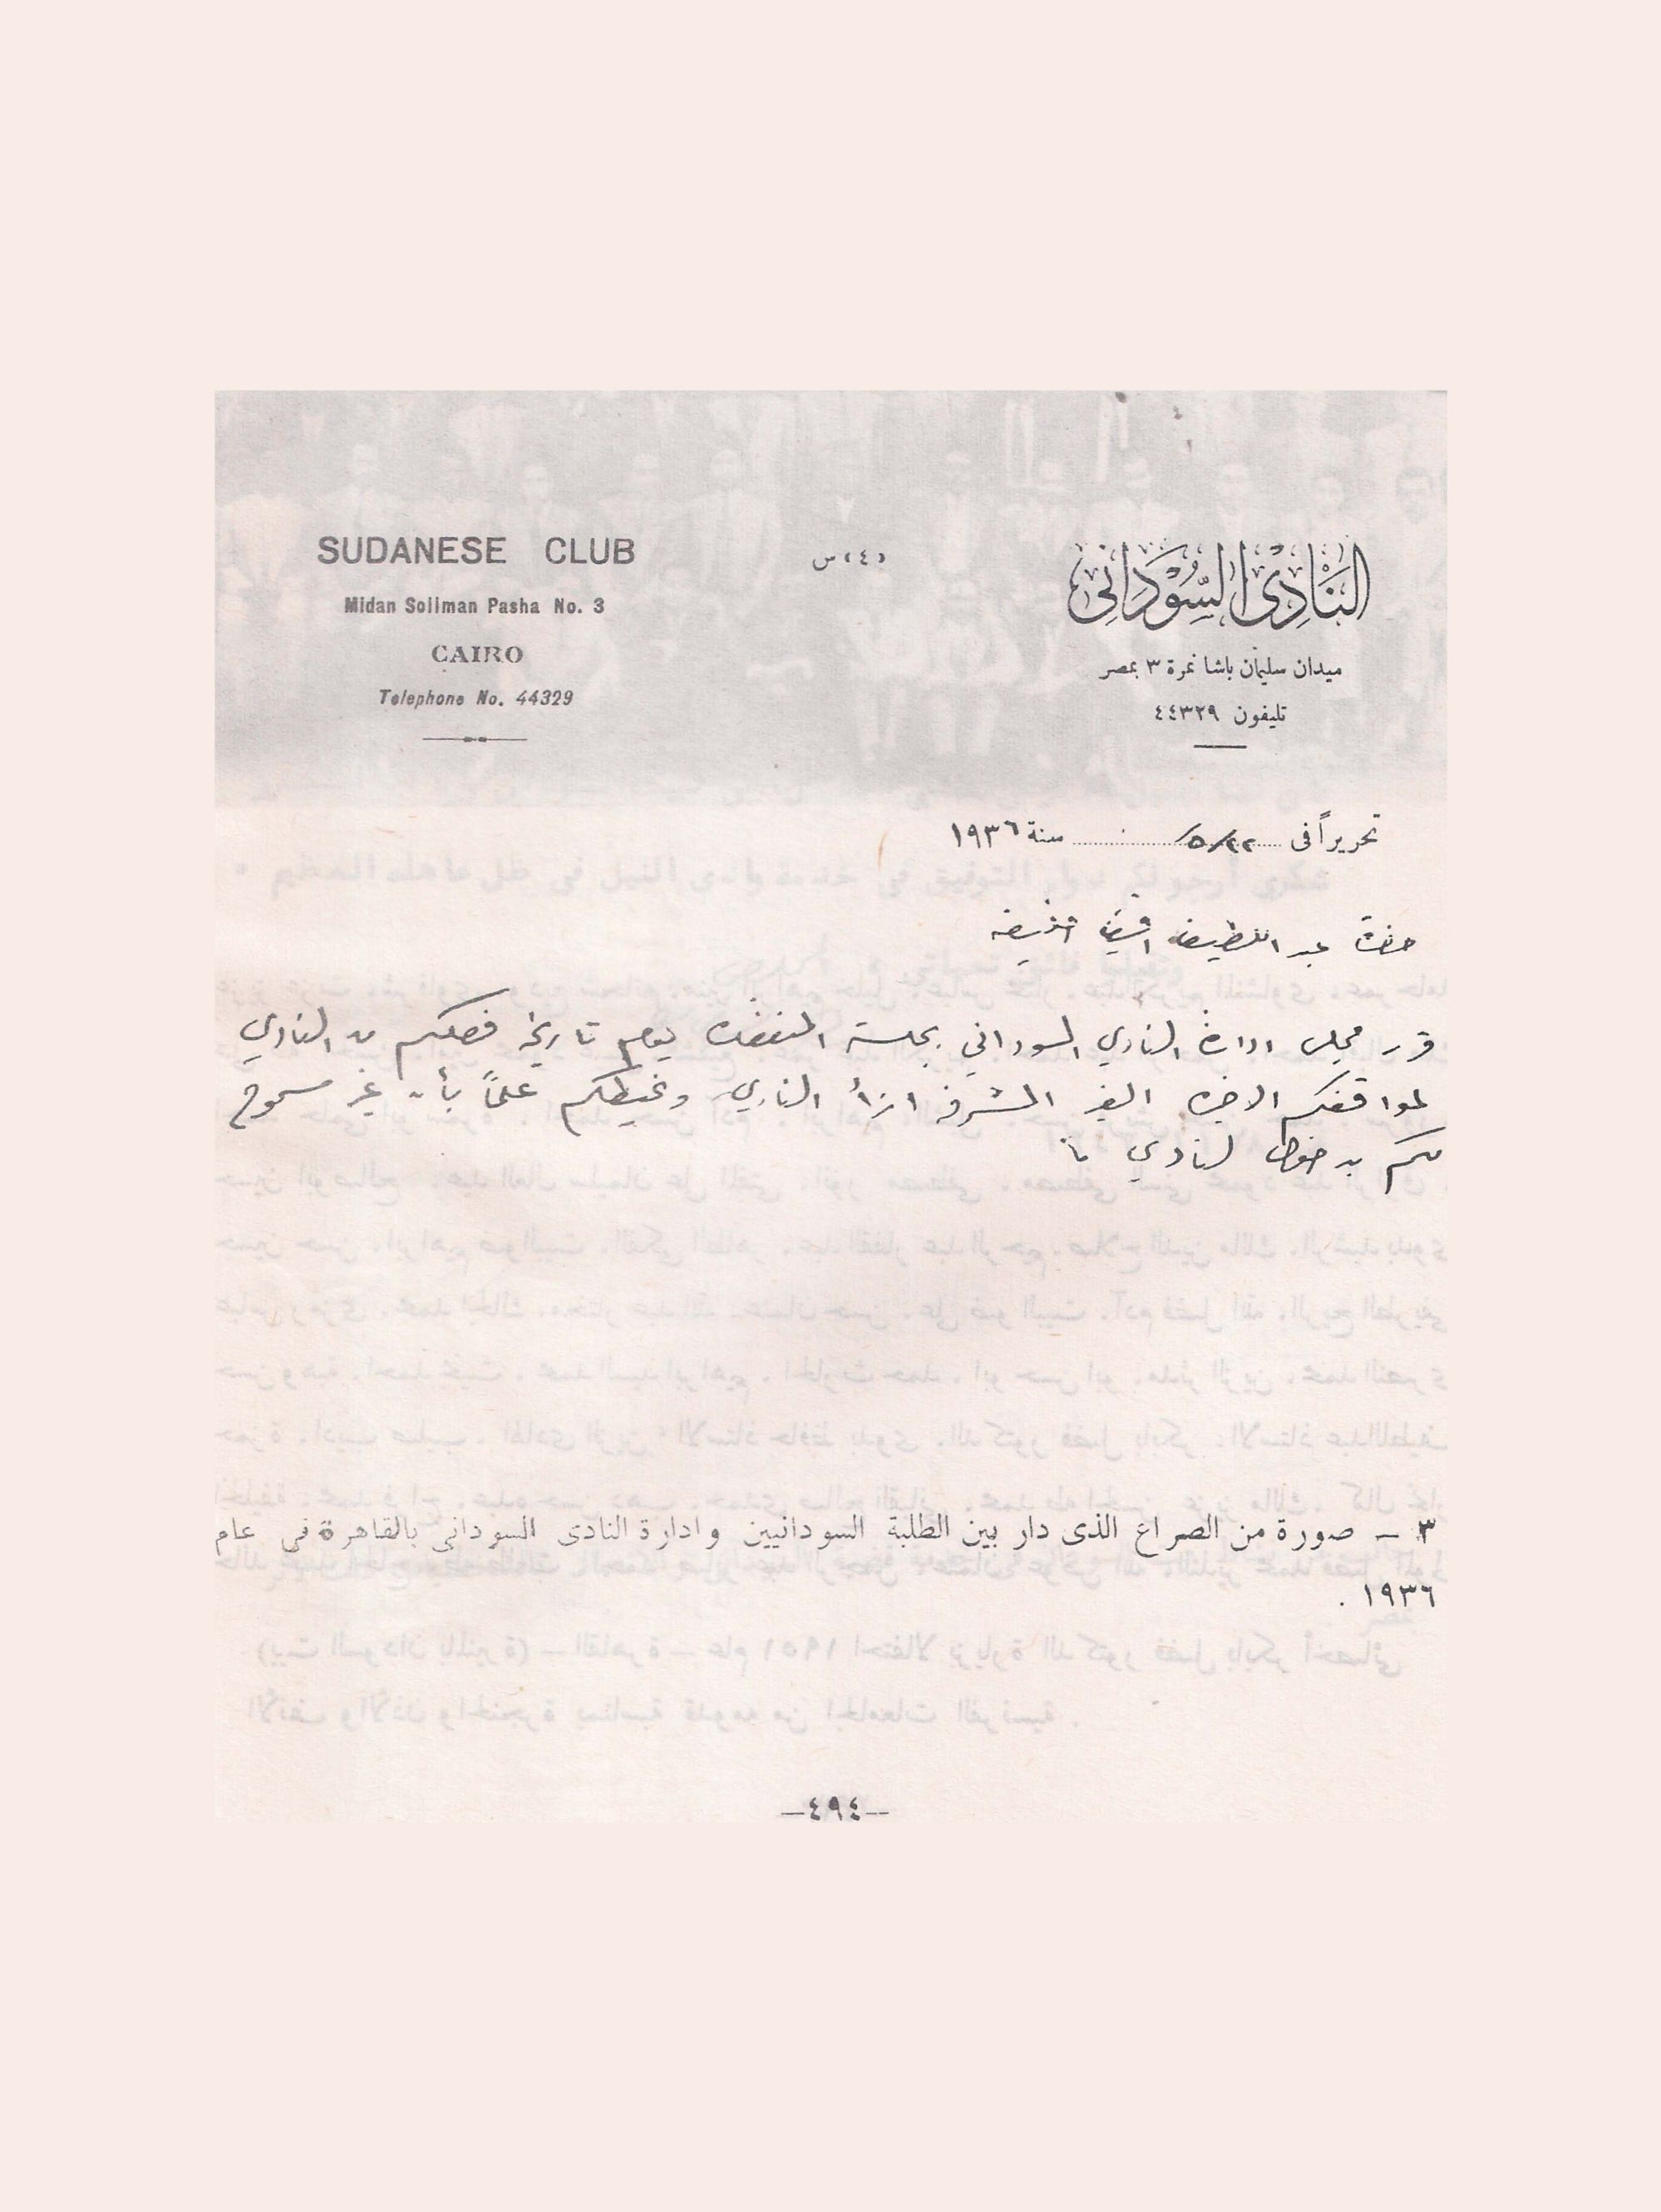 SUDANESE CLUB
Midan Soliman Pasha No. 3
CAIRO
Telephone No. 44329
«٤» س
النادى السودانى
ميدان سليمان باشا نمرة ٣ بمصر
تليفون ٤٤٣٢٩
تحريراً فى ٥/٢٢ سنة ١٩٣٦
حضرة عبد اللطيف افندي
قرر مجلس ادارة النادي السوداني بجلسته المنعقده يوم تاريخه فصلكم من النادي
لمواقفكم الاخيره الغير المشرفه ازاء النادي ونحيطكم علماً بأن غير مسموح
لكم بدخول النادي
٣ – صورة من الصراع الذى دار بين الطلبة السودانيين وادارة النادى السودانى بالقاهرة فى عام
١٩٣٦ .
–٤٩٤–